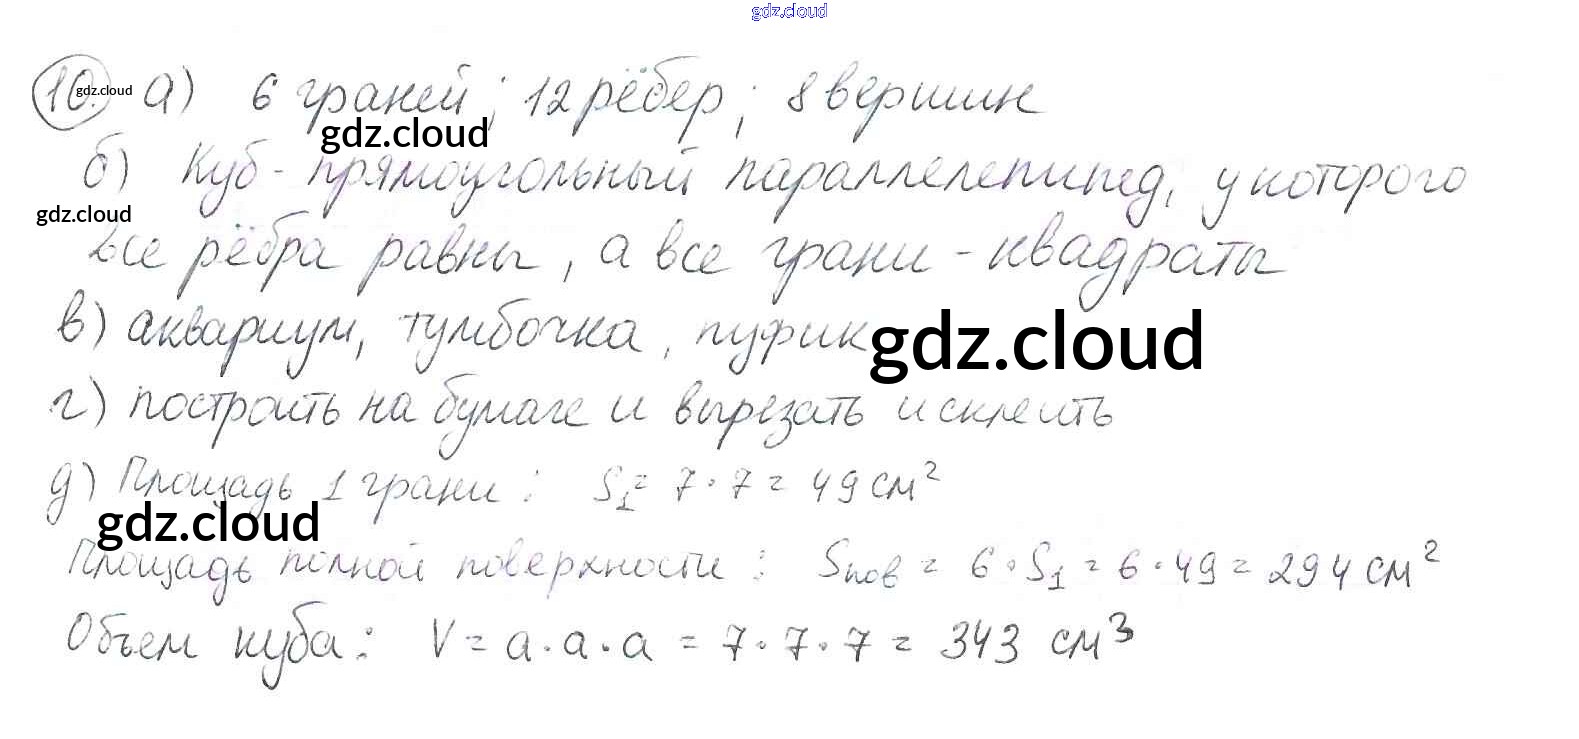 gdz.cloud
10. gdz.cloud а) 6 граней; 12 рёбер; 8 вершин
gdz.cloud
б) Куб - прямоугольный параллелепипед, у которого
gdz.cloud
все рёбра равны, а все грани - квадраты
в) аквариум, тумбочка, пуфик
gdz.cloud
г) построить на бумаге и вырезать и склеить
д) Площадь 1 грани: S₁ = 7·7 = 49 см²
gdz.cloud
Площадь полной поверхности: Sпов = 6·S₁ = 6·49 = 294 см²
Объем куба: V = a·a·a = 7·7·7 = 343 см³